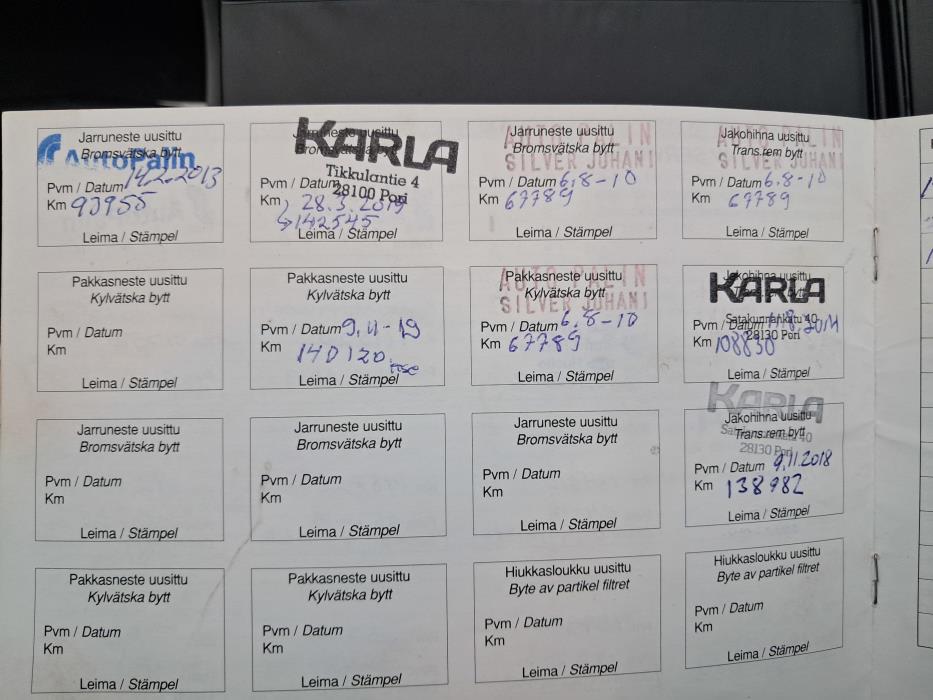 Jarruneste uusittu
Bromsvätska bytt
AutoPalin
Pvm / Datum 14.2.2013
Km 93955
Leima / Stämpel
Jarruneste uusittu
Bromsvätska bytt
KARLA
Tikkulantie 4
28100 Pori
Pvm / Datum
Km 28.3.2019
↳142545
Leima / Stämpel
Jarruneste uusittu
Bromsvätska bytt
AUTO PALIN
SILVER JUHANI
Pvm / Datum 6.8-10
Km 67789
Leima / Stämpel
Jakohihna uusittu
Trans.rem bytt
AUTO PALIN
SILVER JUHANI
Pvm / Datum 6.8-10
Km 67789
Leima / Stämpel
Pakkasneste uusittu
Kylvätska bytt
Pvm / Datum
Km
Leima / Stämpel
Pakkasneste uusittu
Kylvätska bytt
Pvm / Datum 9.11-19
Km 140120
itse
Leima / Stämpel
Pakkasneste uusittu
Kylvätska bytt
AUTO PALIN
SILVER JUHANI
Pvm / Datum 6.8-10
Km 67789
Leima / Stämpel
Jakohihna uusittu
Trans.rem bytt
KARLA
Satakunnankatu 40
28130 Pori
Pvm / Datum
Km 108830
Leima / Stämpel
Jarruneste uusittu
Bromsvätska bytt
Pvm / Datum
Km
Leima / Stämpel
Jarruneste uusittu
Bromsvätska bytt
Pvm / Datum
Km
Leima / Stämpel
Jarruneste uusittu
Bromsvätska bytt
Pvm / Datum
Km
Leima / Stämpel
KARLA
Jakohihna uusittu
Trans.rem bytt
Satakunnankatu 40
28130 Pori
Pvm / Datum 9.11.2018
Km 138982
Leima / Stämpel
Pakkasneste uusittu
Kylvätska bytt
Pvm / Datum
Km
Leima / Stämpel
Pakkasneste uusittu
Kylvätska bytt
Pvm / Datum
Km
Leima / Stämpel
Hiukkasloukku uusittu
Byte av partikel filtret
Pvm / Datum
Km
Leima / Stämpel
Hiukkasloukku uusittu
Byte av partikel filtret
Pvm / Datum
Km
Leima / Stämpel